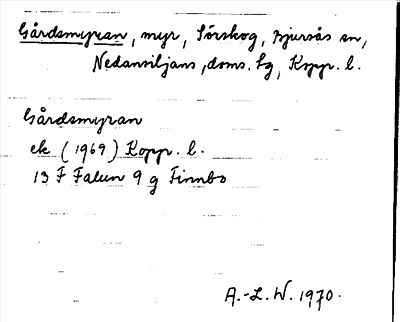 Gårdsmyran, myr, Sörskog, Bjursås sn,
Nedansiljans, doms. fg, Kopp. l.
Gårdsmyran
ek (1969) Kopp. l.
13 F Falun 9 g Finnbo
A.-L. W. 1970.